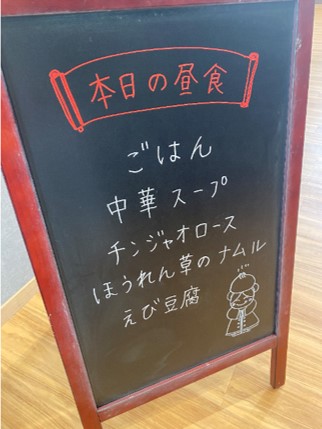 本日の昼食
ごはん
中華スープ
チンジャオロース
ほうれん草のナムル
えび豆腐